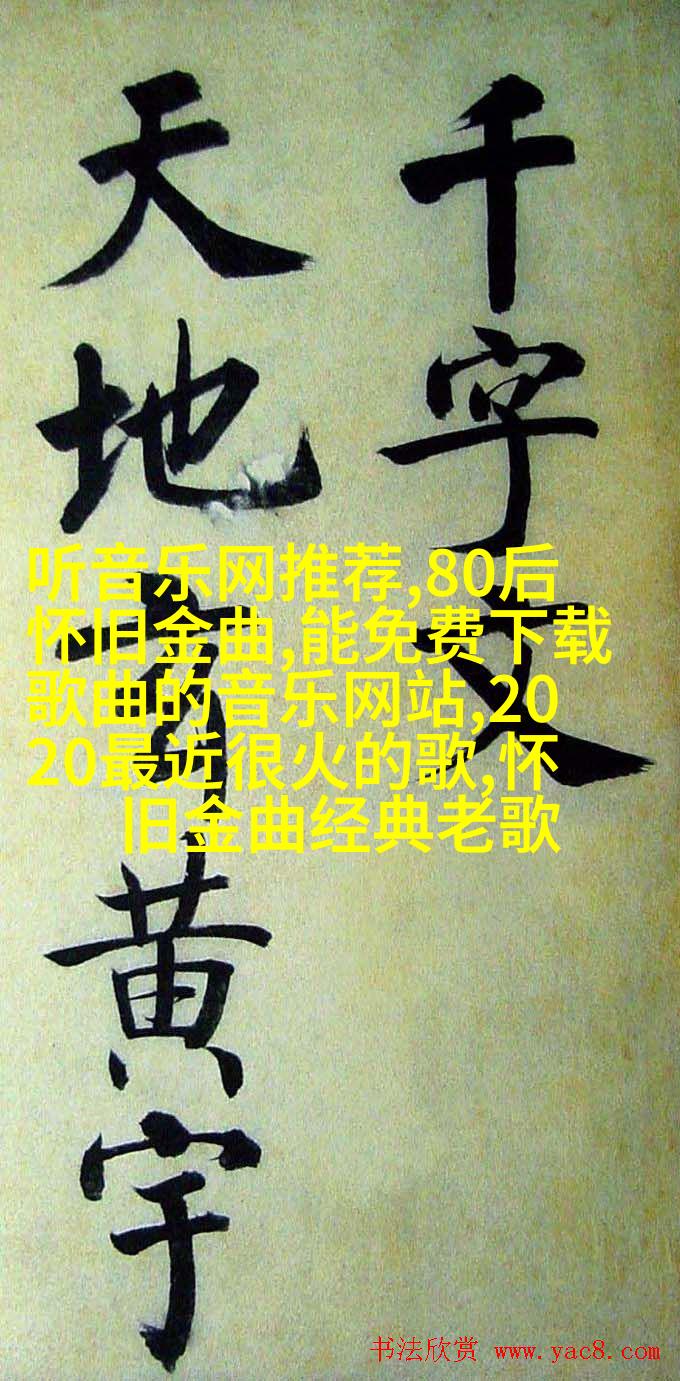 千字文
天地黄宇
听音乐网推荐,80后
怀旧金曲,能免费下载
歌曲的音乐网站,20
20最近很火的歌,怀
旧金曲经典老歌
书法欣赏 www.yac8.com